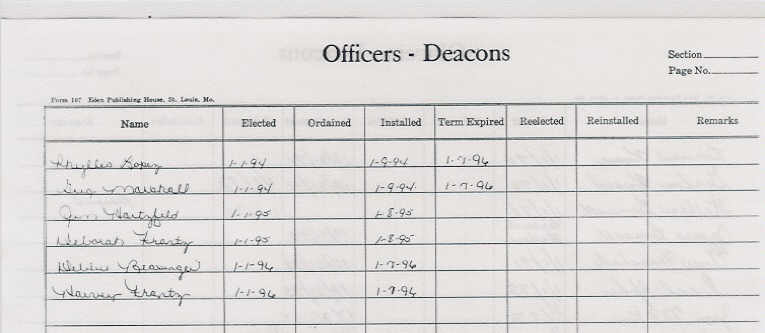 Officers - Deacons
Section
Page No.
Form 107 Eden Publishing House, St. Louis, Mo.
Name Elected Ordained Installed Term Expired Reelected Reinstalled Remarks
Phyllis Lopez 1-1-94 1-9-94 1-7-96
Sue Marshall 1-1-94 1-9-94 1-7-96
Jim Hartzfeld 1-1-95 1-8-95
Deborah Frantz 1-1-95 1-8-95
Debbie 1-1-96 1-7-96
Harvey Frantz 1-1-96 1-7-96